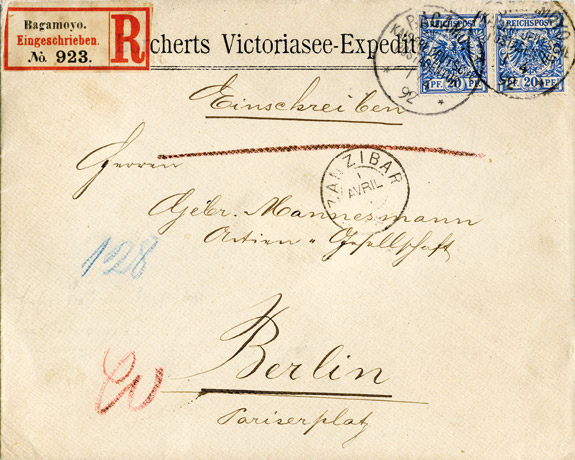 Bagamoyo.
Eingeschrieben.
No. 923.
R
cherts Victoriasee-Expedit
REICHSPOST
PF 20 PF
REICHSPOST
PF 20 PF
92
92
Einschreiben
Herren
ZANZIBAR
1
AVRIL
Gebr. Mannesmann
Actien-Gesellschaft
128
Berlin
Pariserplatz